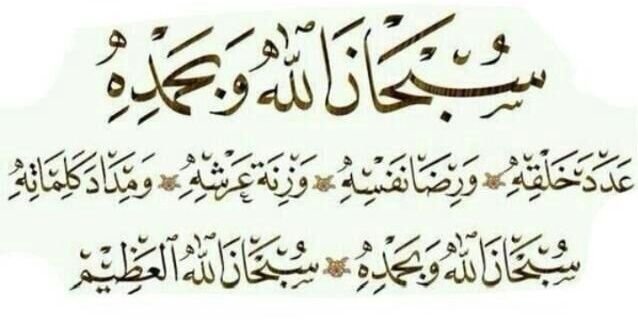 سُبْحَانَ اللهِ وَبِحَمْدِهِ
عَدَدَ خَلْقِهِ وَرِضَا نَفْسِهِ وَزِنَةَ عَرْشِهِ وَمِدَادَ كَلِمَاتِهِ
سُبْحَانَ اللهِ وَبِحَمْدِهِ سُبْحَانَ اللهِ الْعَظِيْمِ